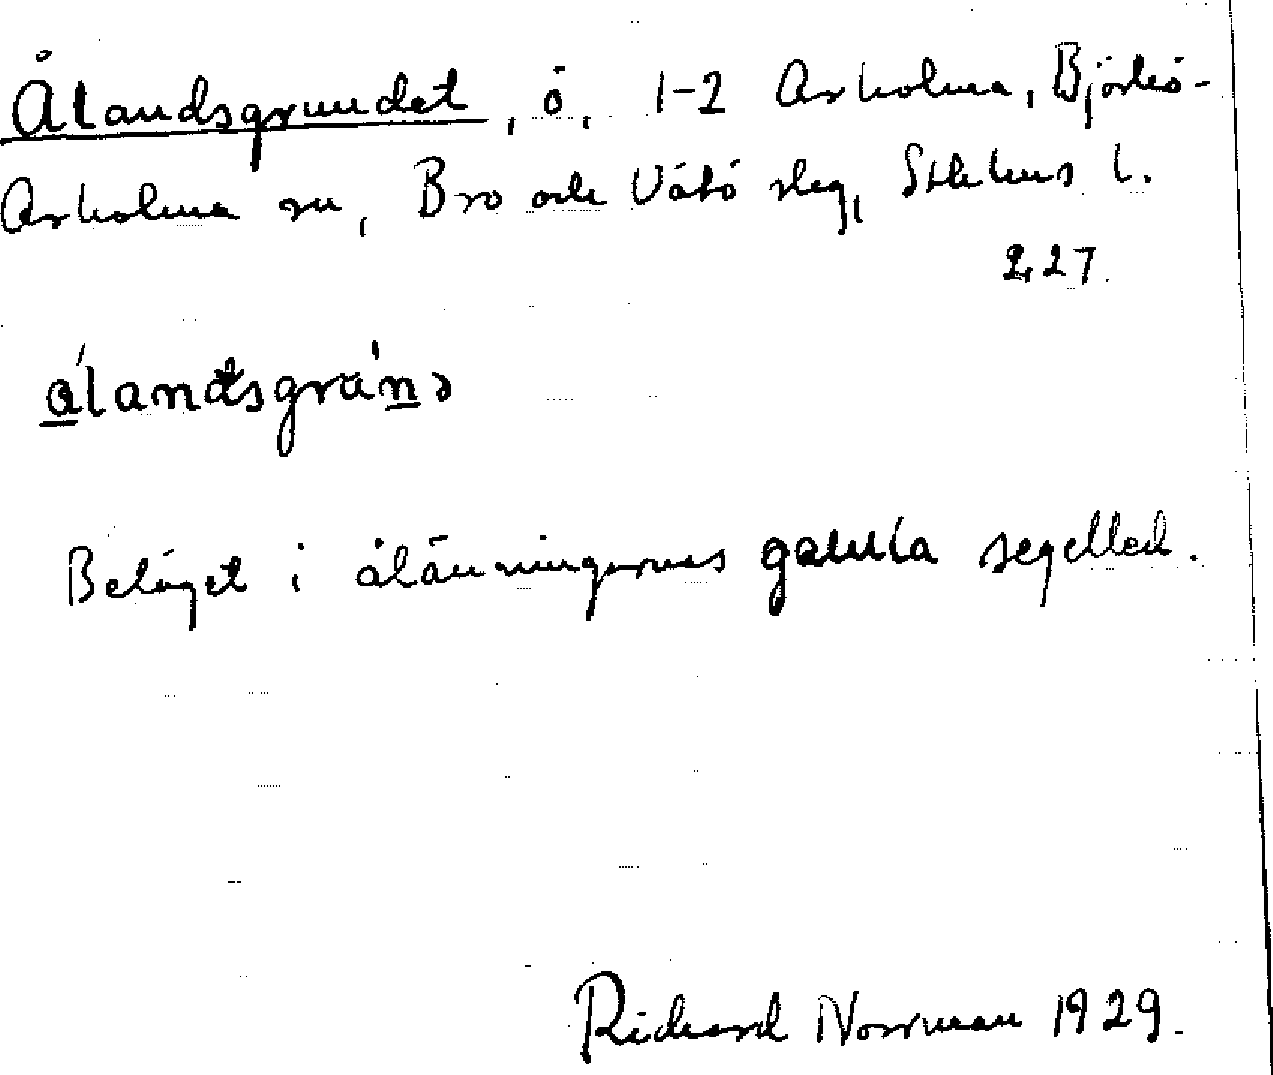 Ålandsgrundet, ö, 1-2 Arholma, Björkö-
Arholma sn, Bro och Vätö skg, Sthlms l.
2,27.
álandsgránə
Beläget i ålänningarnas gamla segelled.
Richard Norrman 1929.